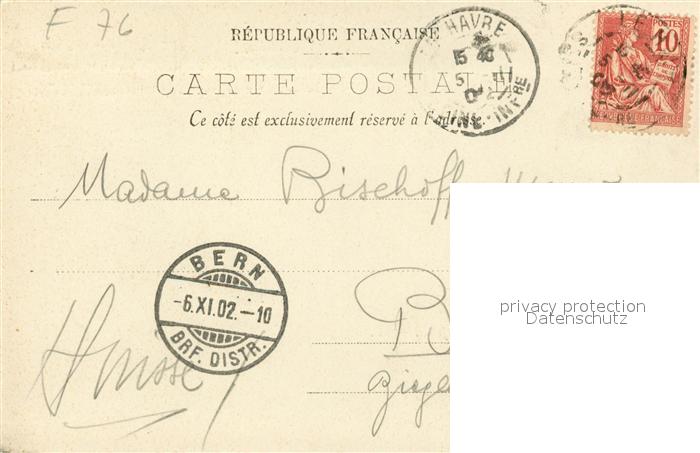 F 76
RÉPUBLIQUE FRANÇAISE
CARTE POSTALE
Ce côté est exclusivement réservé à l'adresse.
HAVRE
15 40
5 11
02
INFRE
POSTES
10
FRANÇAISE
Madame Bischoff
BERN
-6.XI.02.-10
BRF. DISTR.
privacy protection
Datenschutz
Suisse